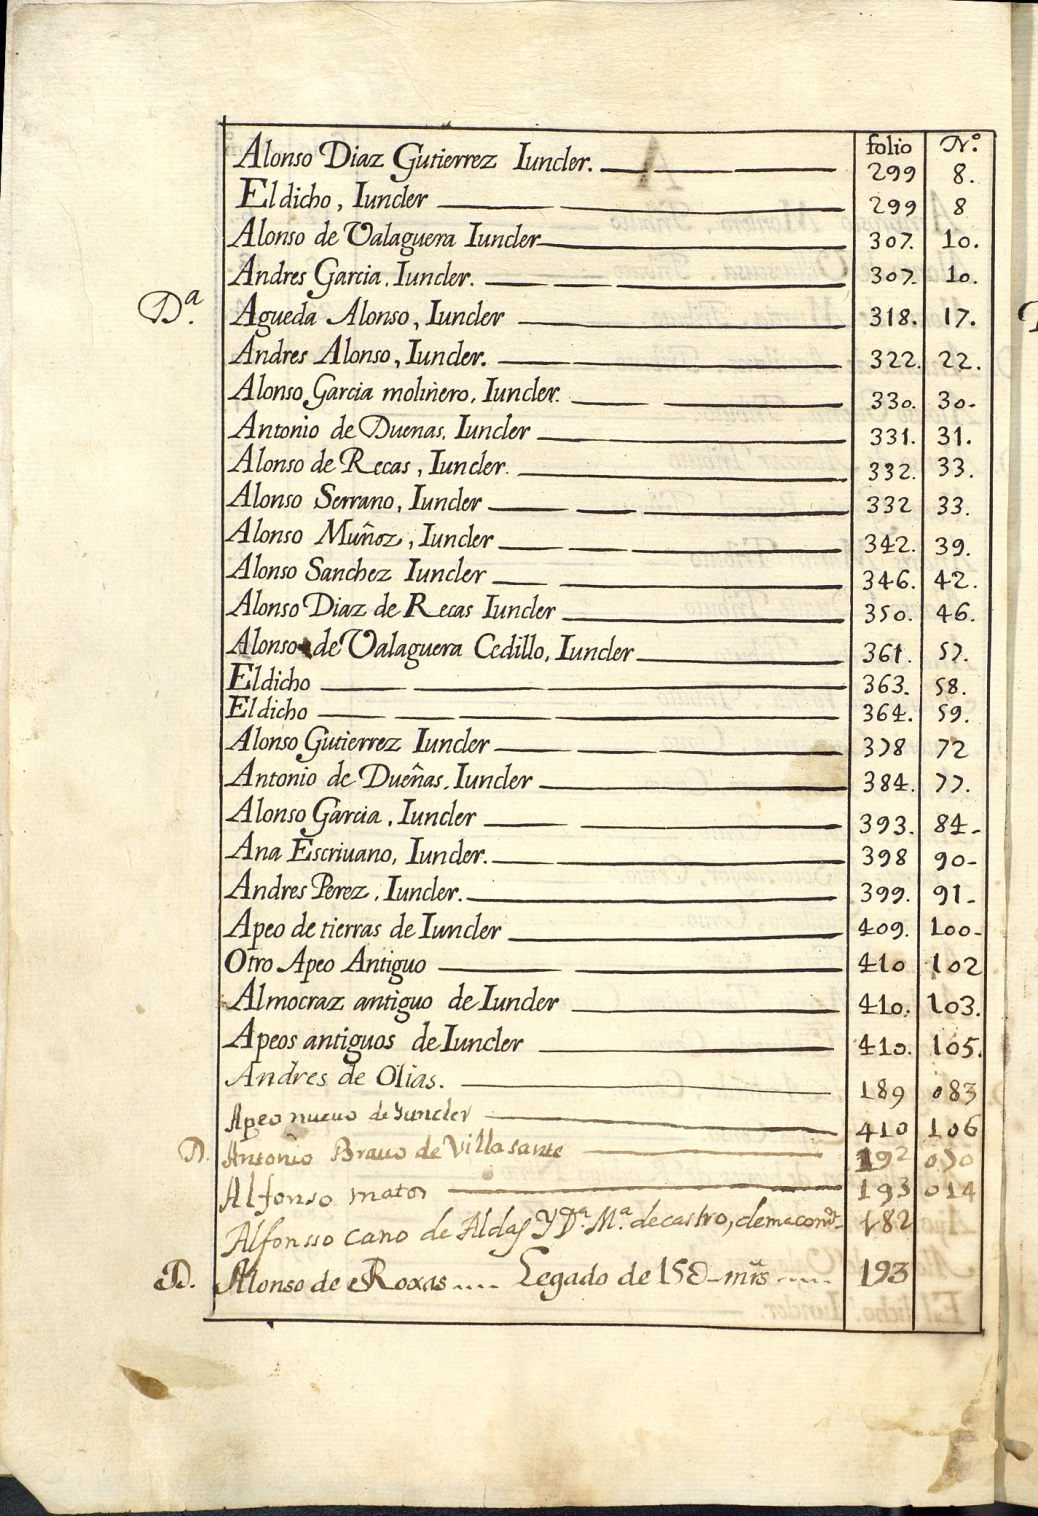 folio Nº.
Alonso Diaz Gutierrez Iuncler. 299 8.
El dicho, Iuncler 299 8
Alonso de Valaguera Iuncler 307. 10.
Andres Garcia, Iuncler. 307. 10.
Dª. Agueda Alonso, Iuncler 318. 17.
Andres Alonso, Iuncler. 322. 22.
Alonso Garcia molinero, Iuncler. 330. 30-
Antonio de Duenas, Iuncler 331. 31.
Alonso de Recas, Iuncler. 332. 33.
Alonso Serrano, Iuncler 332 33.
Alonso Muñoz, Iuncler 342. 39.
Alonso Sanchez Iuncler 346. 42.
Alonso Diaz de Recas Iuncler 350. 46.
Alonso de Valaguera Cedillo, Iuncler 361. 57.
El dicho 363. 58.
El dicho 364. 59.
Alonso Gutierrez Iuncler 378 72
Antonio de Dueñas, Iuncler 384. 77.
Alonso Garcia, Iuncler 393. 84-
Ana Escriuano, Iuncler. 398 90-
Andres Perez, Iuncler. 399. 91-
Apeo de tierras de Iuncler 409. 100-
Otro Apeo Antiguo 410 102
Almocraz antiguo de Iuncler 410. 103.
Apeos antiguos de Iuncler 410. 105.
Andres de Olias. 189 083
Apeo nueuo de Iuncler 410 106
D. Antonio Brauo de Villasante 192 050
Alfonso mator 193 014
Alfonsso cano de Aldas Y Dª. Mª. de castro, 182
D. Alonso de Roxas.... Legado de 150-mrs ..... 193